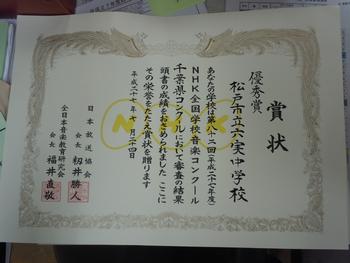 賞状
優秀賞
松戸市立六実中学校
あなたの学校は第八十二回(平成二十七年度)
NHK全国学校音楽コンクール
千葉県コンクールにおいて審査の結果
頭書の成績をおさめられました ここに
その栄誉をたたえ賞状を贈ります
平成二十七年七月二十四日
日本放送協会
会長 籾井勝人
全日本音楽教育研究会
会長 福井直敬
NHK